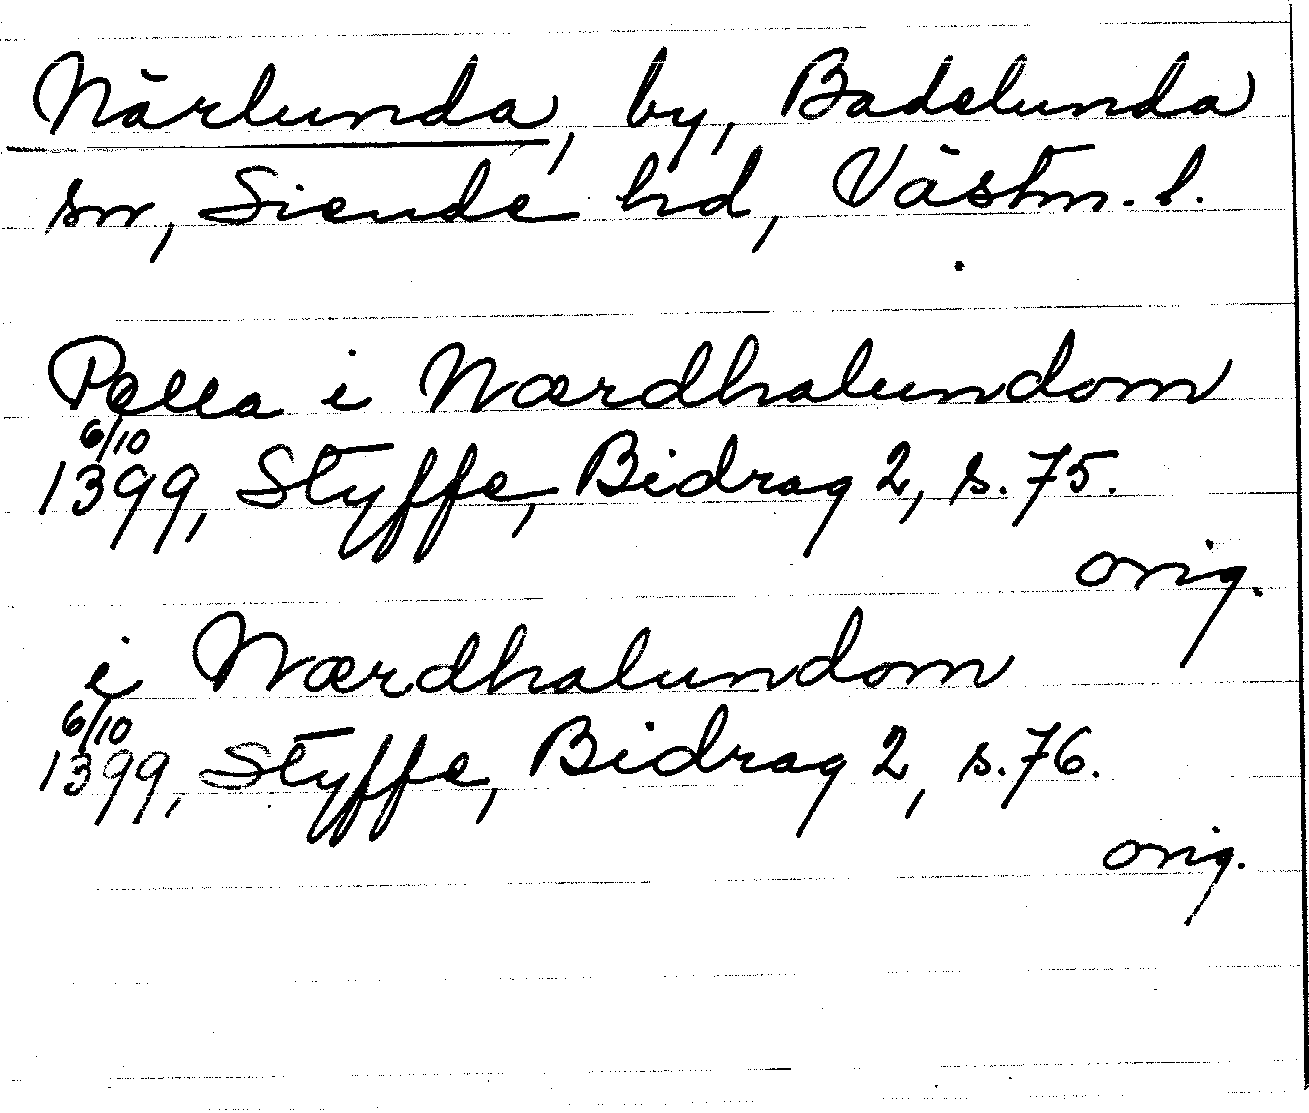 Närlunda, by, Badelunda
sn, Siende hd, Västm. l.
Pella i Nærdhalundom
6/10
1399, Styffe, Bidrag 2, s. 75.
orig.
i Nærdhalundom
6/10
1399, Styffe, Bidrag 2, s. 76.
orig.